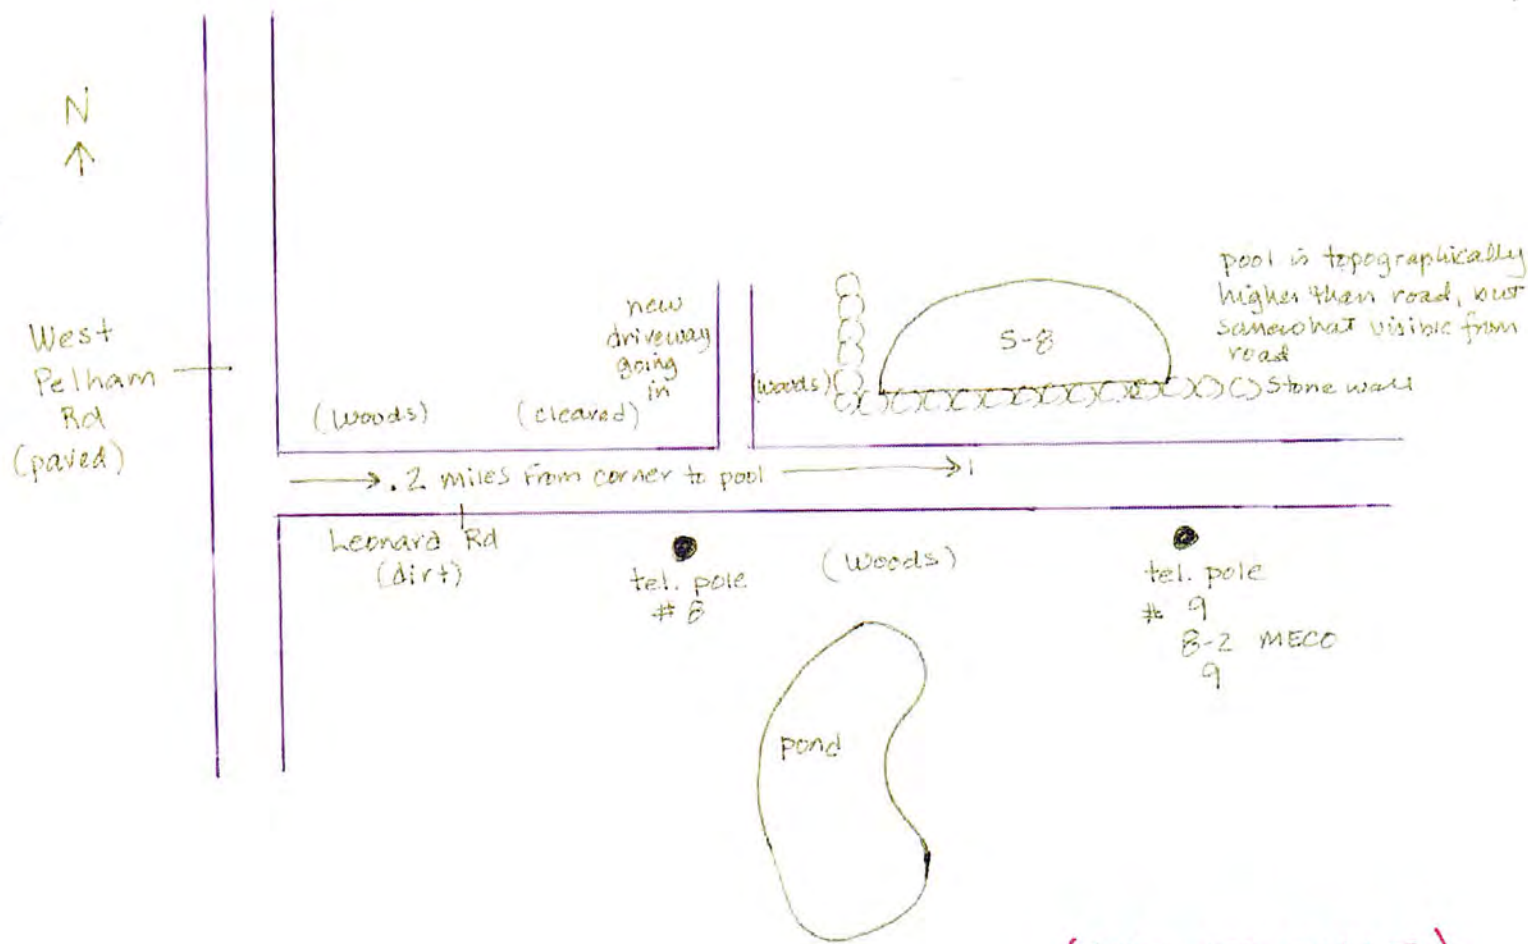 N
West
Pelham
Rd
(paved)
new
driveway
going
in
(woods)
(cleared)
(woods)
S-8
pool is topographically
higher than road, but
somewhat visible from
road
Stone wall
.2 miles from corner to pool
Leonard Rd
(dirt)
tel. pole
# 8
(woods)
tel. pole
# 9
8-2 MECO
9
pond